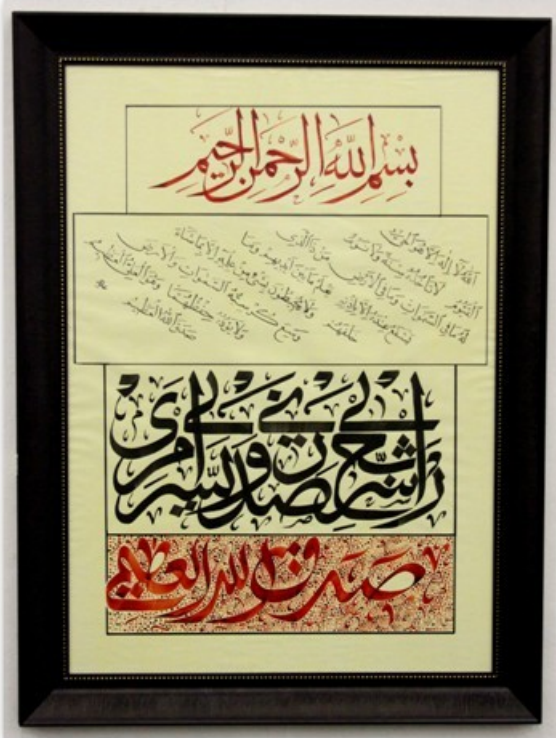 بِسْمِ اللَّهِ الرَّحْمَنِ الرَّحِيمِ
اللَّهُ لَا إِلَهَ إِلَّا هُوَ الْحَيُّ
الْقَيُّومُ لَا تَأْخُذُهُ سِنَةٌ وَلَا نَوْمٌ
لَهُ مَا فِي السَّمَوَاتِ وَمَا فِي الْأَرْضِ
مَنْ ذَا الَّذِي
يَشْفَعُ عِنْدَهُ إِلَّا بِإِذْنِهِ
يَعْلَمُ مَا بَيْنَ أَيْدِيهِمْ وَمَا
خَلْفَهُمْ
وَلَا يُحِيطُونَ بِشَيْءٍ مِنْ عِلْمِهِ إِلَّا بِمَا شَاءَ
وَسِعَ كُرْسِيُّهُ السَّمَوَاتِ وَالْأَرْضَ
وَلَا يَؤُدُهُ حِفْظُهُمَا وَهُوَ الْعَلِيُّ الْعَظِيمُ
صَدَقَ اللَّهُ الْعَظِيمُ
رَبِّ اشْرَحْ لِي صَدْرِي وَيَسِّرْ لِي أَمْرِي
صدق الله العظيم